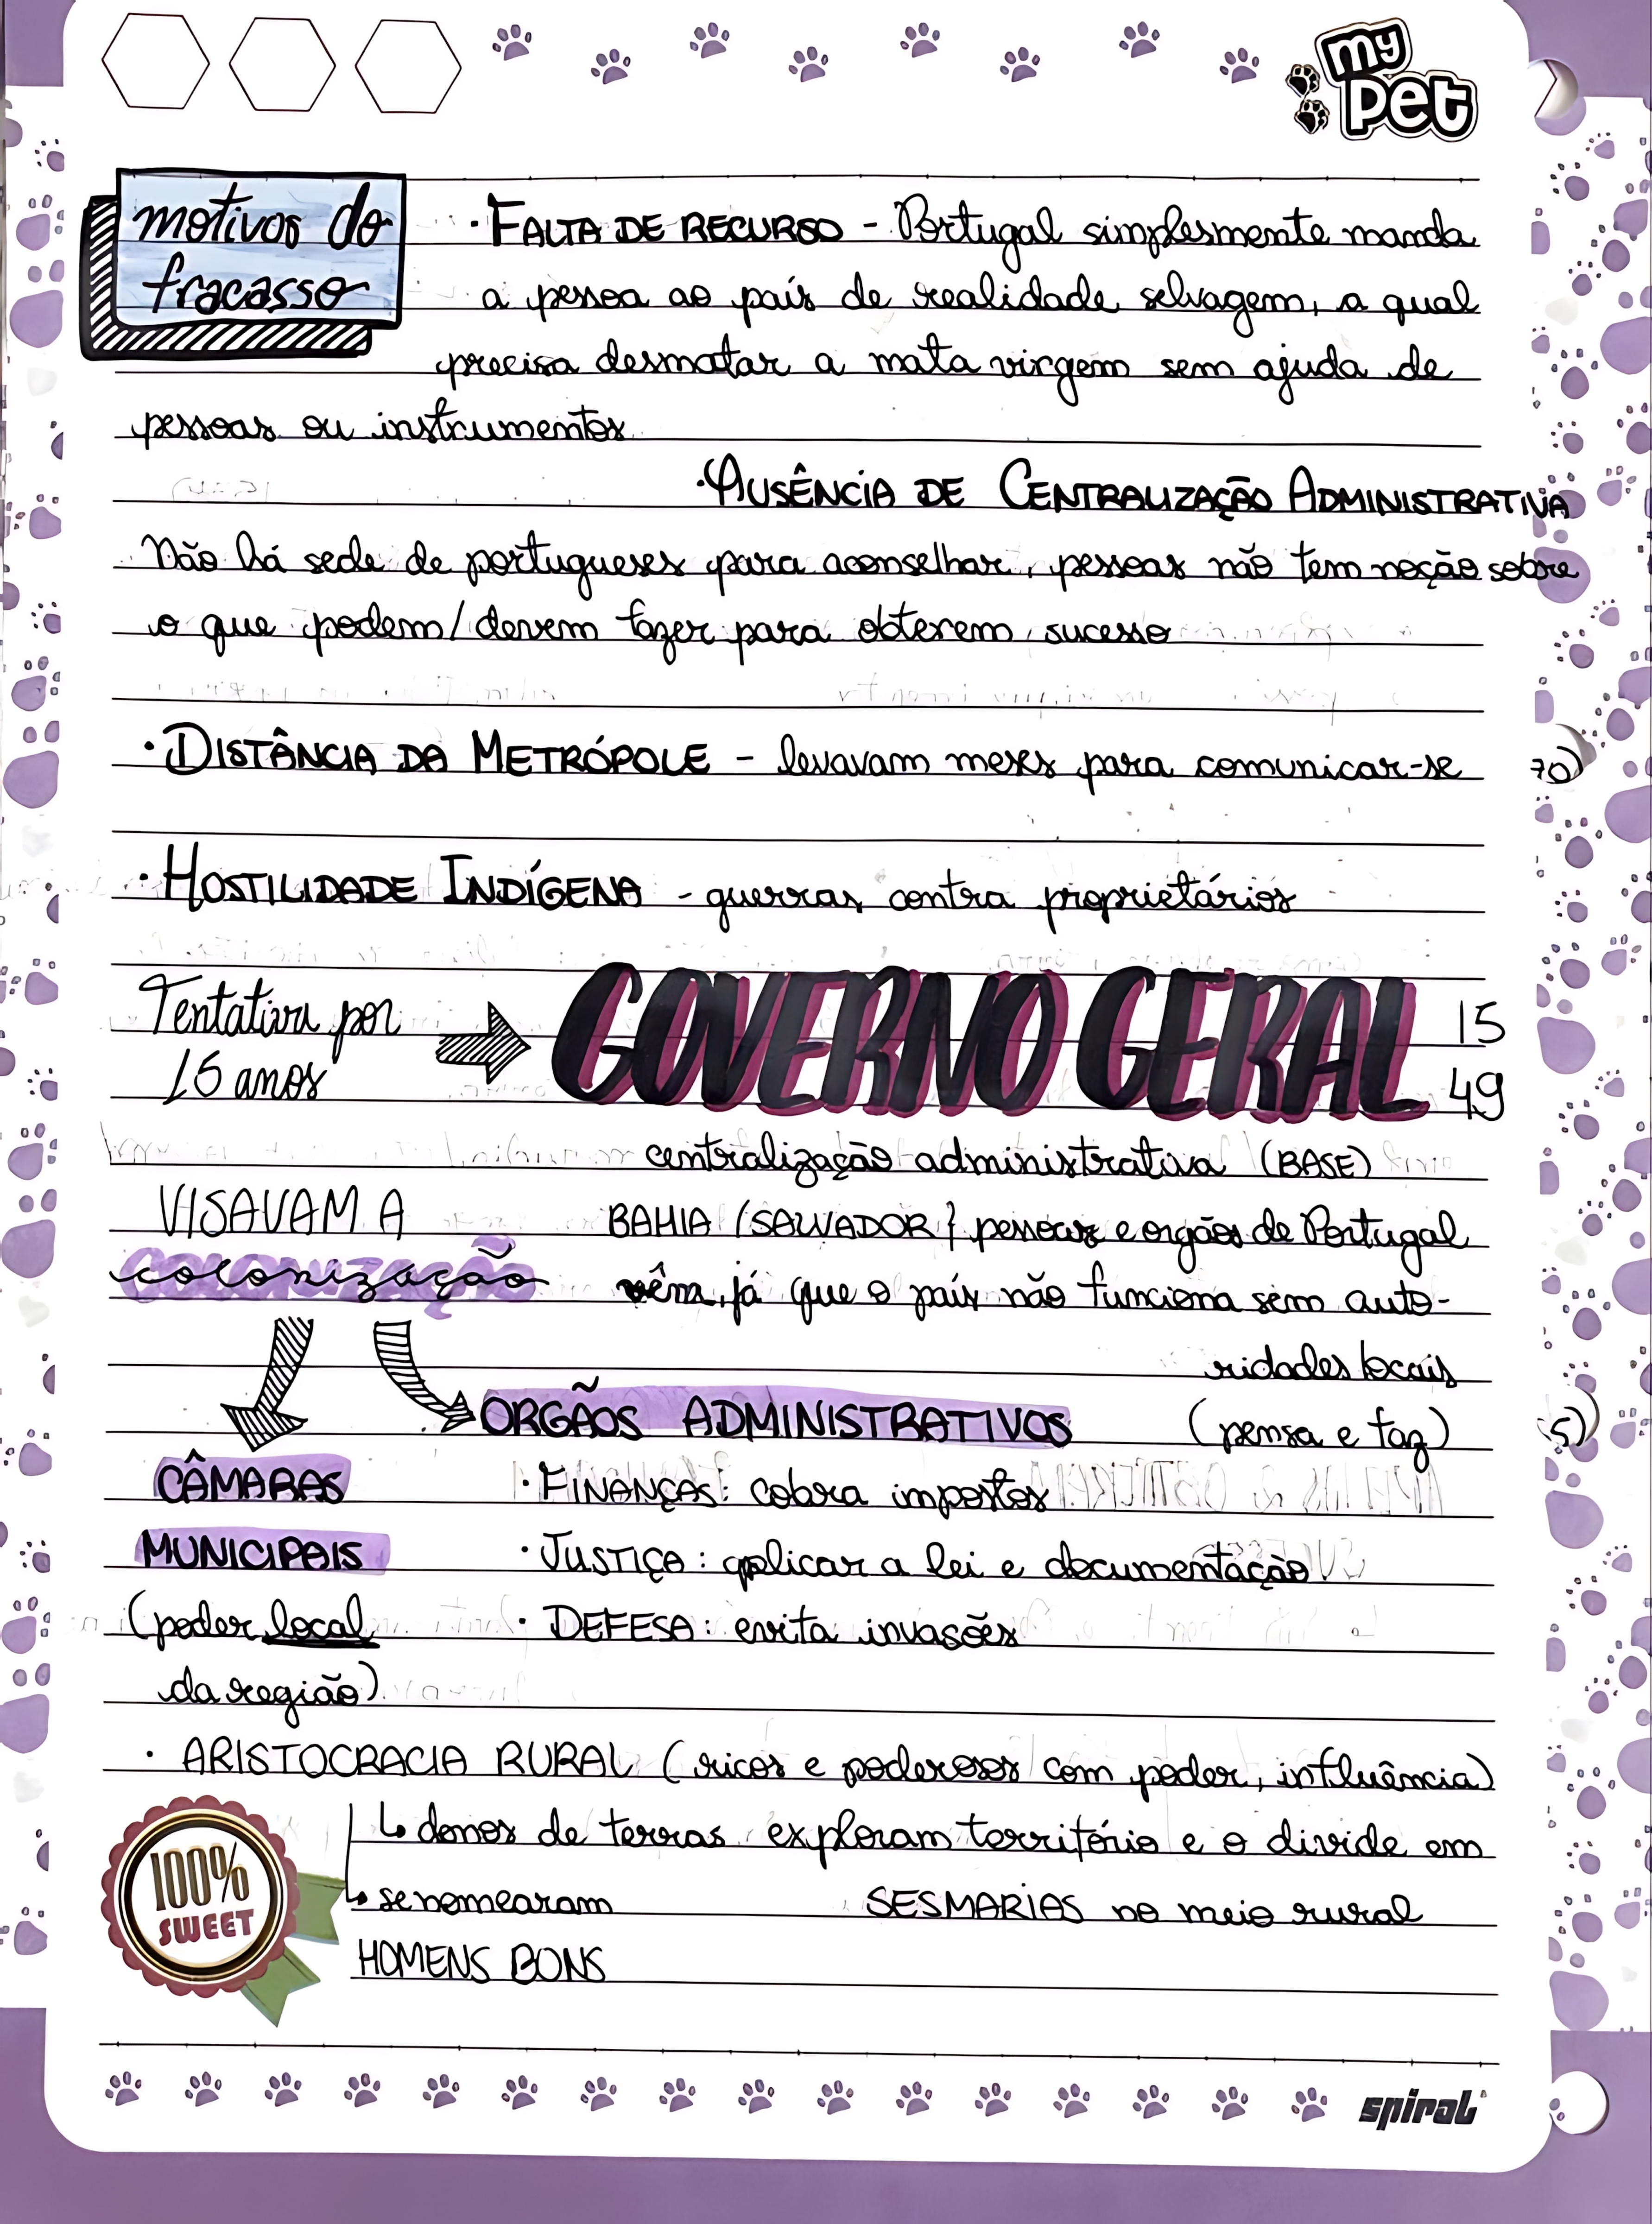 my
pet
motivos do
fracasso
· FALTA DE RECURSO - Portugal simplesmente manda
a pessoa ao país de realidade selvagem, a qual
precisa desmatar a mata virgem sem ajuda de
pessoas ou instrumentos
· AUSÊNCIA DE CENTRALIZAÇÃO ADMINISTRATIVA
Não há sede de portugueses para aconselhar, pessoas não tem noção sobre
o que podem/devem fazer para obterem sucesso
· DISTÂNCIA DA METRÓPOLE - levavam meses para comunicar-se
· HOSTILIDADE INDÍGENA - guerras contra proprietários
Tentativa por
15 anos
GOVERNO GERAL
15
49
centralização administrativa (BASE)
VISAVAM A
colonização
BAHIA (SALVADOR} pessoas e orgãos de Portugal
vêm, já que o país não funciona sem auto-
ridades locais
ORGÃOS ADMINISTRATIVOS (pensa e faz)
CÂMARAS
MUNICIPAIS
(poder local
da região)
· FINANÇAS: cobra impostos
· JUSTIÇA: aplicar a lei e documentação
· DEFESA: evita invasões
· ARISTOCRACIA RURAL (ricos e poderosos com poder, influência)
↳ donos de terras exploram território e o divide em
SESMARIAS no meio rural
↳ se nomearam
HOMENS BONS
100%
SWEET
spiral